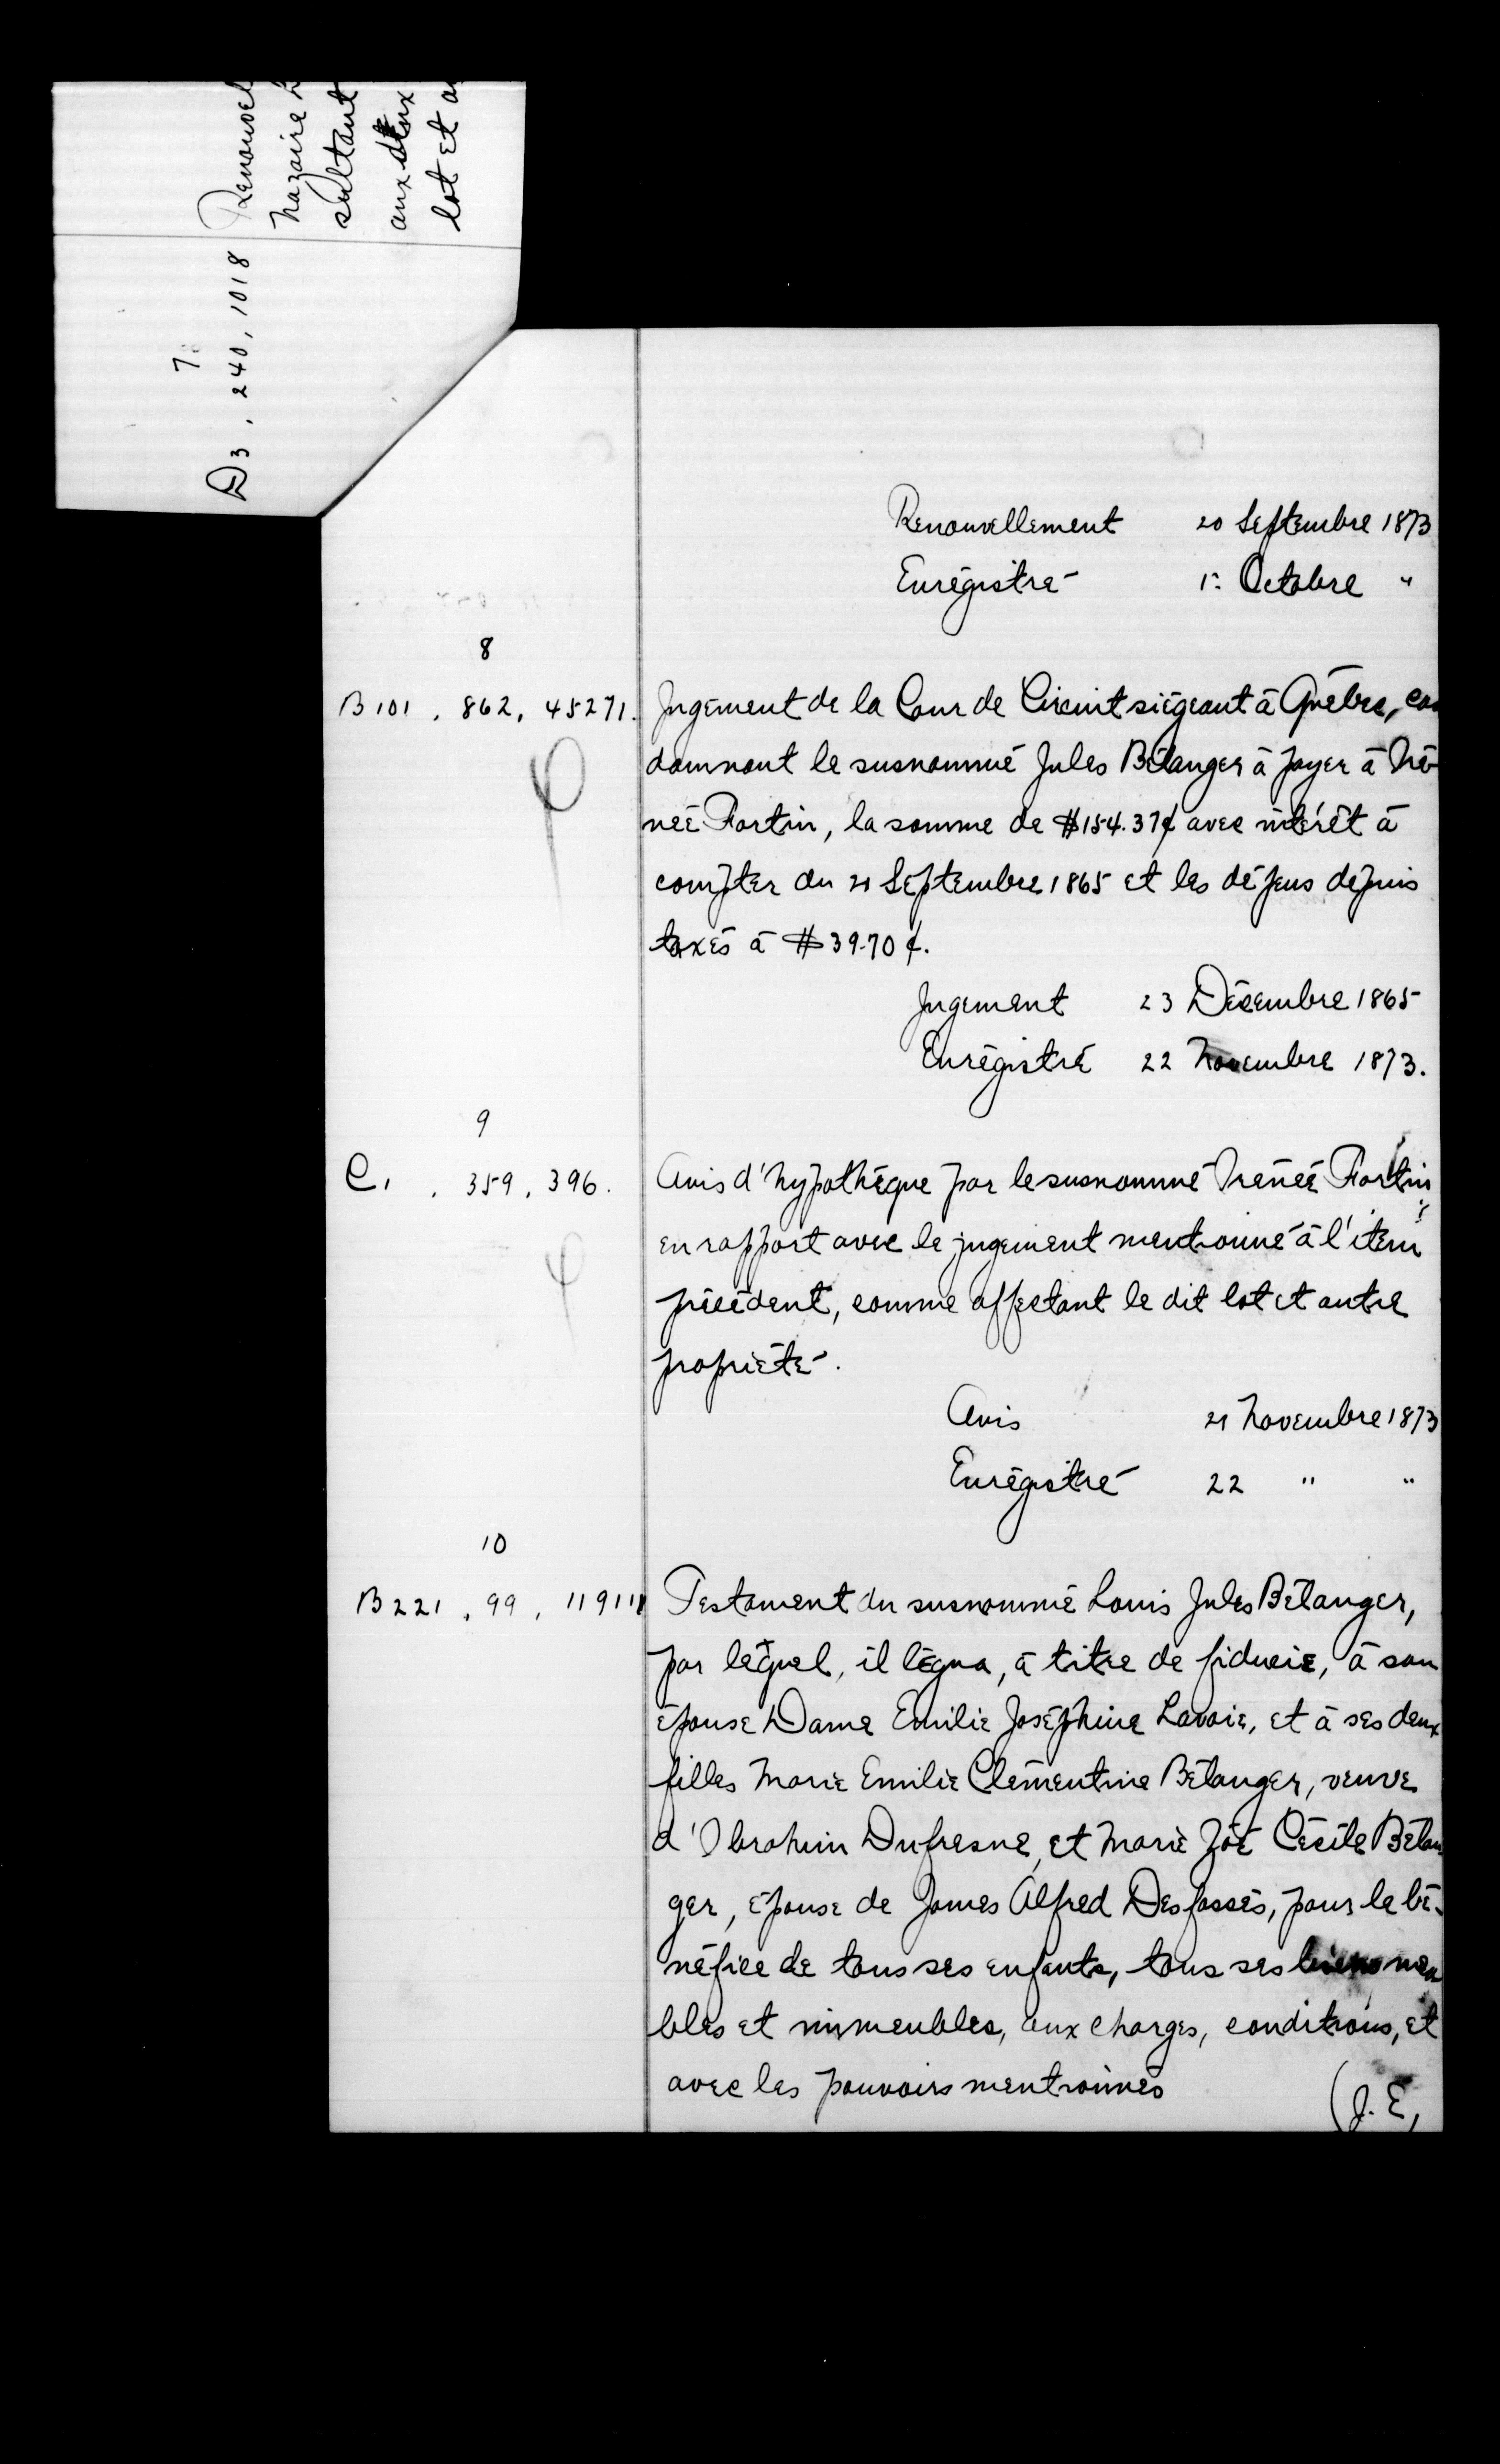 7
D3, 240, 1018 Renouvel
Nazaire
sultant
aux deux
lot et a
Renouvellement 20 Septembre 1873
Enrégistré 1º Octobre "
8
B101, 862, 45271. Jugement de la Cour de Circuit siégeant à Québec, con
damnant le susnommé Jules Bélanger à payer à Iré-
née Fortin, la somme de $154.37¢ avec intérêt à
compter du 21 Septembre 1865 et les dépens depuis
taxés à $39.70¢.
Jugement 23 Décembre 1865
Enrégistré 22 Novembre 1873.
9
C1, 359, 396. Avis d'hypothèque par le susnommé Irénée Fortin
en rapport avec le jugement mentionné à l'item
précédent, comme affectant le dit lot et autre
propriété.
Avis 21 Novembre 1873
Enrégistré 22 " "
10
B221, 99, 119111 Testament du susnommé Louis Jules Bélanger,
par lequel, il légua, à titre de fiducie, à son
épouse Dame Emilie Joséphine Lavoie, et à ses deux
filles Marie Emilie Clémentine Bélanger, veuve
d'Ibrahim Dufresne, et Marie Zoé Cécile Bélan
ger, épouse de James Alfred Desfossés, pour le bé-
néfice de tous ses enfants, tous ses biens meu
bles et immeubles, aux charges, conditions, et
avec les pouvoirs mentionnés
(J. E,